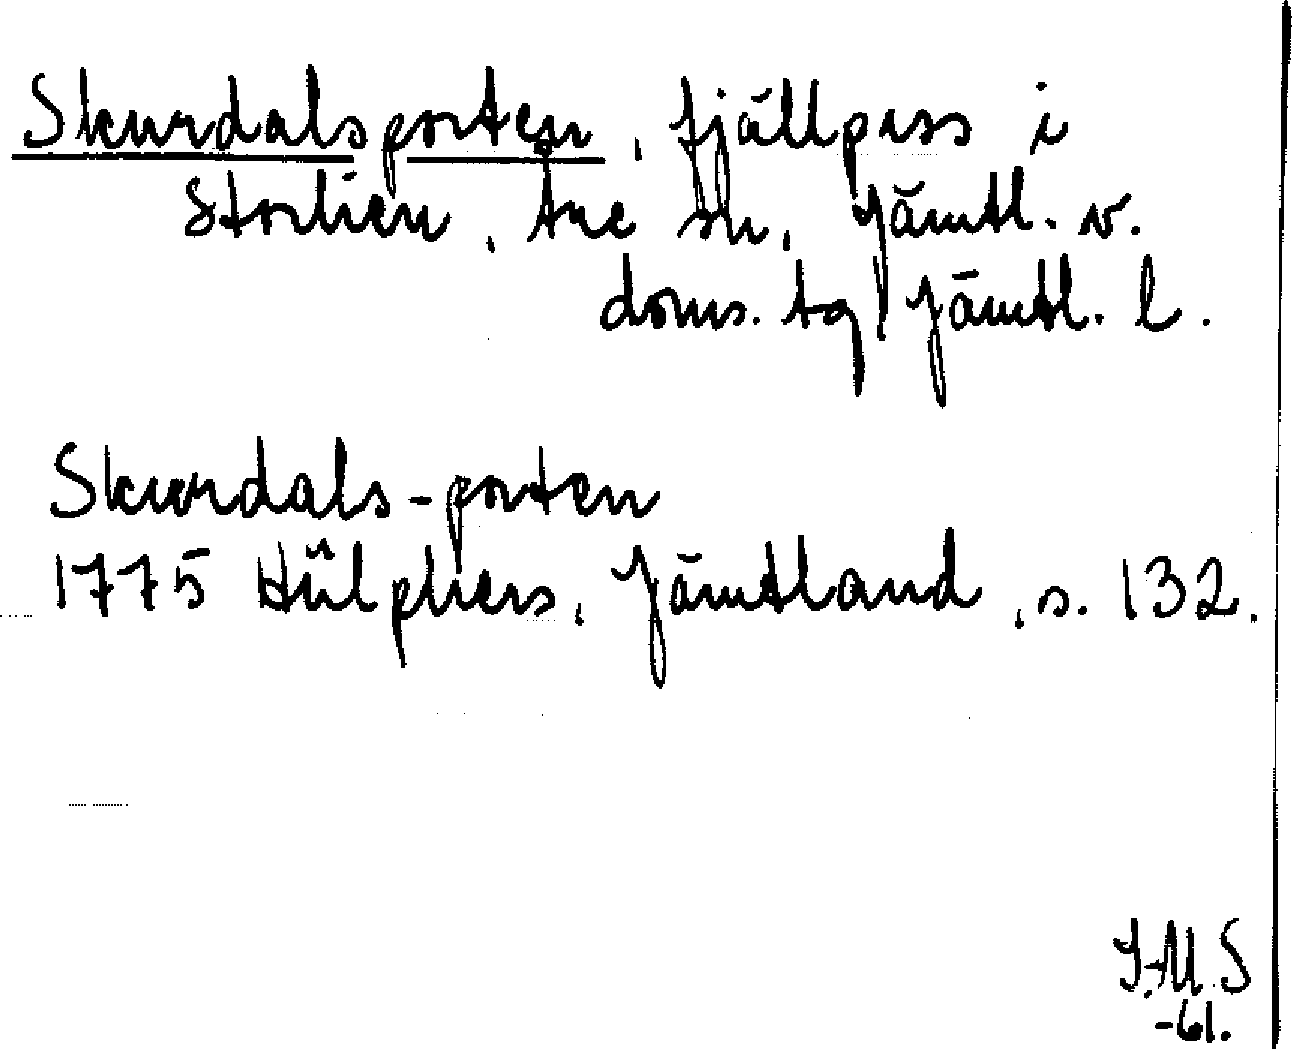 Skurdalsporten, fjällpass i
Storlien, Åre sn, Jämtl. v.
doms. tg Jämtl. l.
Skurdals-porten
1775 Hülphers, Jämtland, s. 132.
I.-M.S
-61.